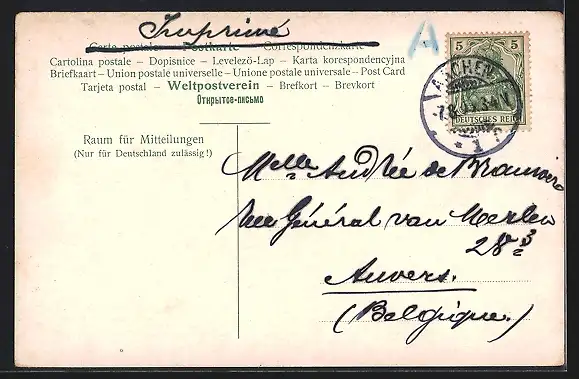 Imprimé
Carte postale – Postkarte – Correspondenzkarte
Cartolina postale – Dopisnice – Levelező-Lap – Karta korespondencyjna
Briefkaart – Union postale universelle – Unione postale universale – Post Card
Tarjeta postal – Weltpostverein – Brefkort – Brevkort
Открытое-письмо
A
5 5
DEUTSCHES REICH
AACHEN
Raum für Mitteilungen
(Nur für Deutschland zulässig!)
Melle Andrée de
Rue Général van Merlen
28
Anvers.
(Belgique.)